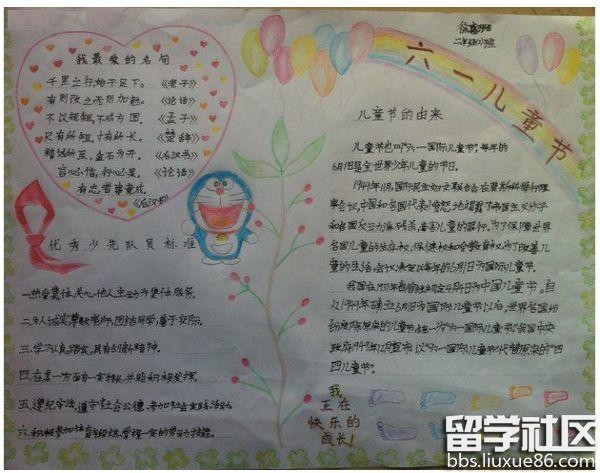 我最爱的名句
千里之行,始于足下。《老子》
有则改之无则加勉。《论语》
不以规矩,不成方圆。《孟子》
尺有所短,寸有所长。《楚辞》
精诚所至,金石为开。《后汉书》
言必信,行必果。《论语》
有志者事竟成。
《后汉书》
优秀少先队员标准
一.热爱集体,关心他人,主动为集体服务。
二.为人诚实,尊敬老师,团结同学,善于交际。
三.学习认真踏实,具有创新精神。
四.在某一方面有一定特长,并能积极发挥
五.遵纪守法,遵守社会公德,参加社会实践活动
六.积极参加体育锻炼,掌握一定的劳动技能。
二年级
六一儿童节
儿童节的由来
儿童节也叫"六一国际儿童节",每年的
6月1日是全世界少年儿童的节日。
1949年11月,国际民主妇女联合会在莫斯科举行理
事会议,中国和各国代表愤怒地揭露了帝国主义分子
和各国反动派残杀、毒害儿童的罪行。为了保障世界
各国儿童的生存权、保健权和受教育权,为了改善儿
童的生活,会议决定以每年的6月1日为国际儿童节。
我国在1931年曾规定4月4日为中国儿童节。自
从1949年确立6月1日为国际儿童节以后,世界各国纷
纷废除原来的儿童节,统一为"六一国际儿童节"我国中央
政府1949年12月宣布,以"六一国际儿童节"代替原来的"四
四儿童节"。
我
正在
快乐的
成长!
留学社区
bbs.liuxue86.com